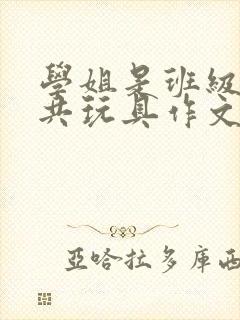 學姐是班級
共玩具作文
亞哈拉多庫西